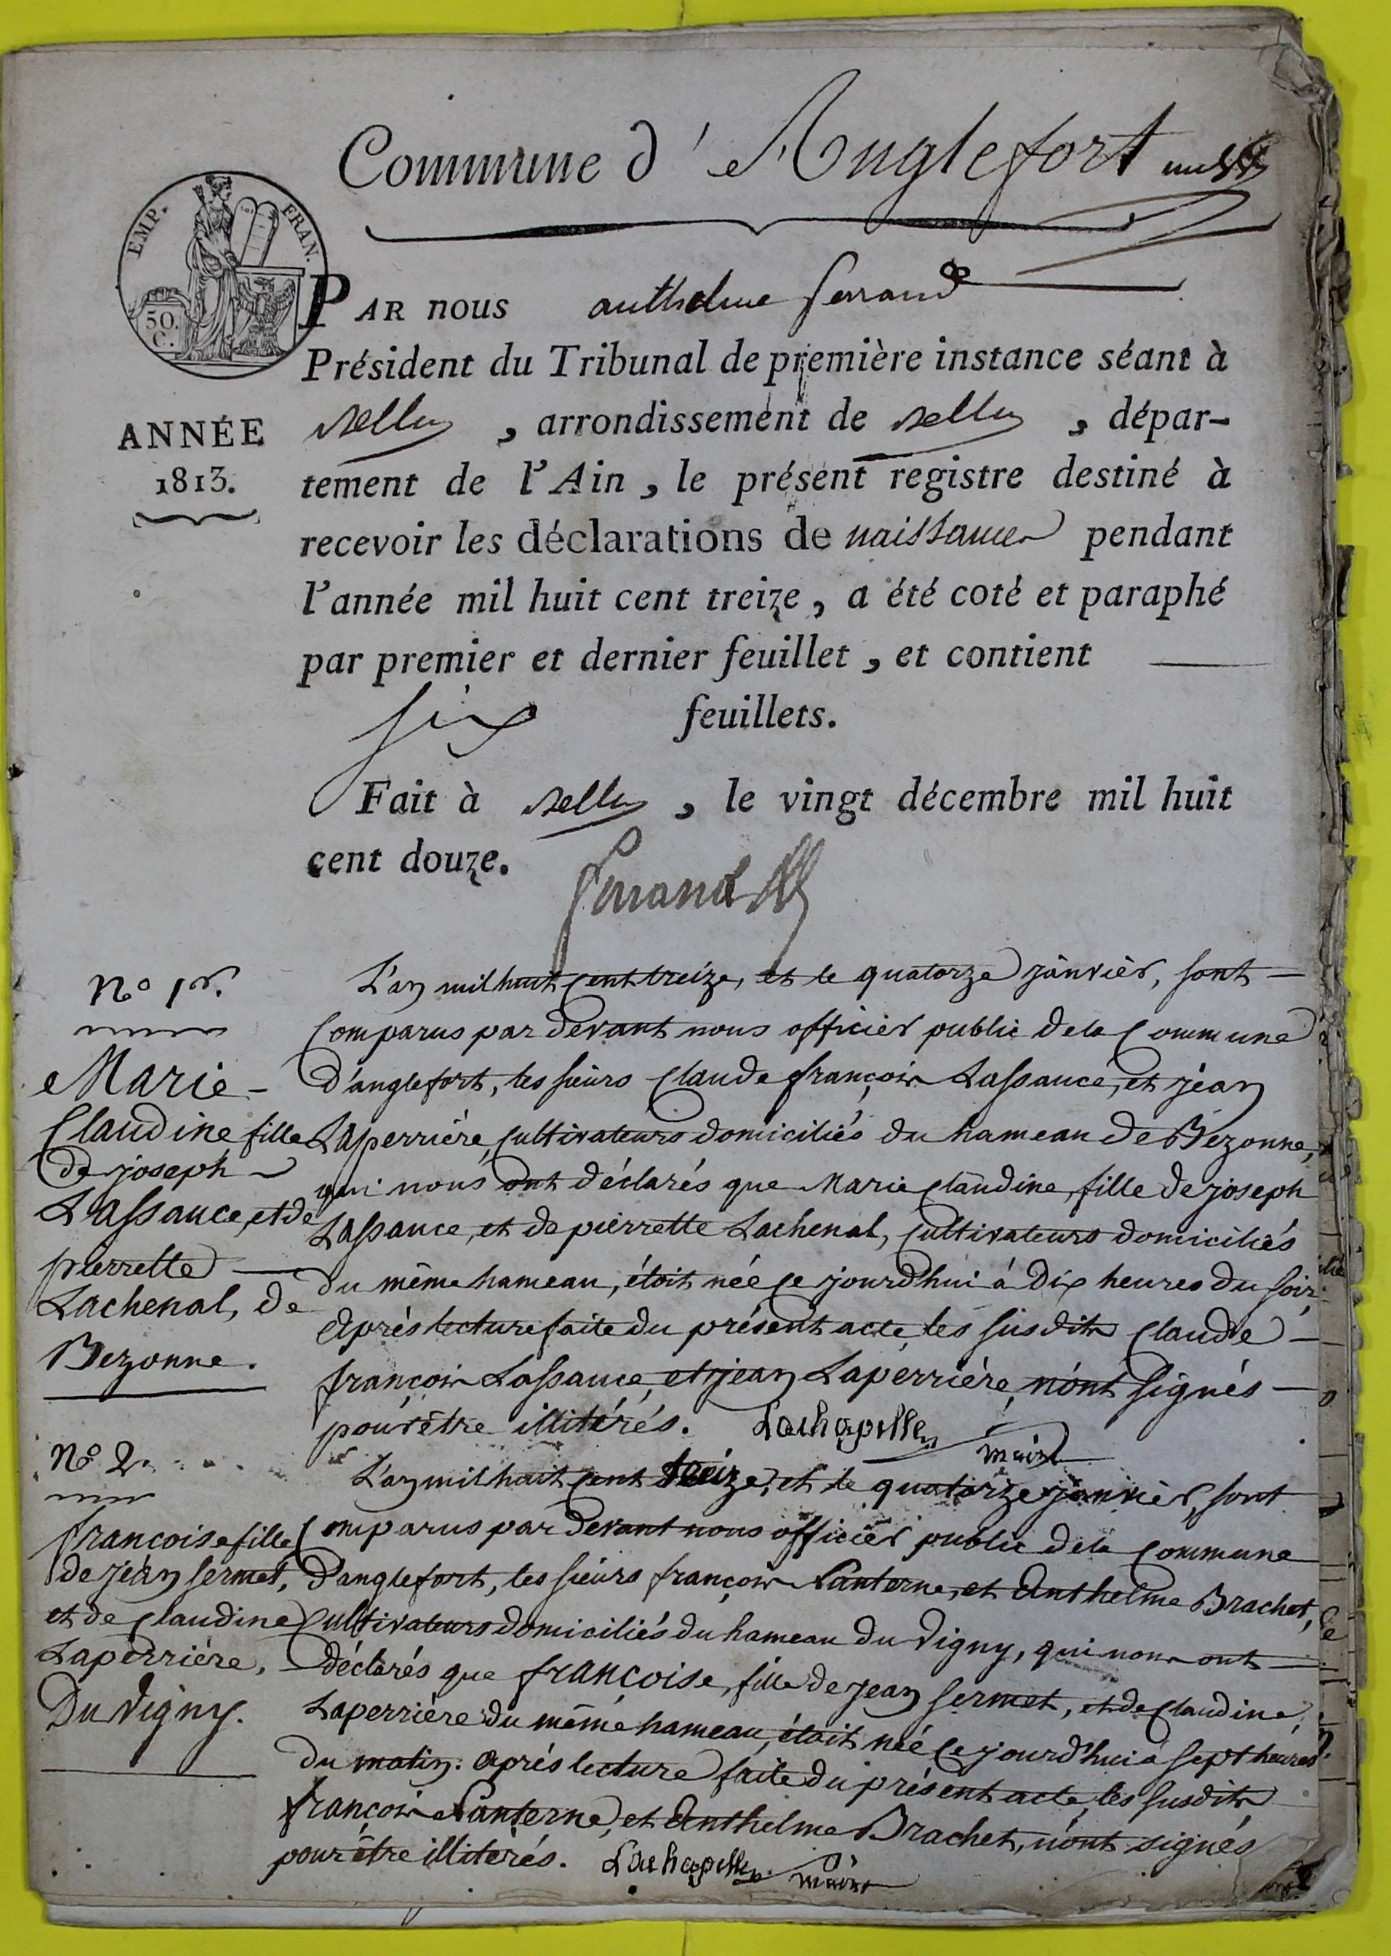 Commune d'Anglefort
EMP. FRAN.
50.
C.
PAR nous anthelme ferrand
Président du Tribunal de première instance séant à
Belley, arrondissement de Belley, dépar-
ANNÉE
1813.
tement de l'Ain, le présent registre destiné à
recevoir les déclarations de naissance pendant
l'année mil huit cent treize, a été coté et paraphé
par premier et dernier feuillet, et contient
six feuillets.
Fait à Belley, le vingt décembre mil huit
cent douze.
ferrand
No 1er.
Marie
Claudine fille
de joseph
Lassauce, et de
pierrette
Lachenal, de
Bezonne.
L'an mil huit cent treize, et le quatorze janvièr, sont
Comparus par devant nous officièr public de la Commune
d'anglefort, les sieurs Claude françois Lassauce, et jean
Laperrière, Cultivateurs domiciliés du hameau de Bezonne,
qui nous ont déclarés que Marie Claudine, fille de joseph
Lassauce, et de pierrette Lachenal, Cultivateurs domiciliés
du même hameau, étoit née ce jourd'hui à Dix heures du soir,
Après lecture faite du présent acte, les susdits Claude
françois Lassauce, et jean Laperrière, n'ont signés
pour être illitérés. Lachapelle maire
No 2.
francoise fille
de jean sermet,
et de Claudine
Laperriére,
Du Vigny.
L'an mil huit cent treize, et le quatorze janvièr, sont
Comparus par devant nous officièr public de la Commune
d'anglefort, les sieurs françois Lanterne, et Anthelme Brachet,
Cultivateurs domiciliés du hameau du Vigny, qui nous ont
déclarés que francoise, fille de jean sermet, et de Claudine
Laperrière du même hameau, étoit née ce jourd'hui a sept heures
du matin. après lecture faite du présent acte, les susdits
françois Lanterne, et Anthelme Brachet, n'ont signés
pour être illitérés. Lachapelle maire